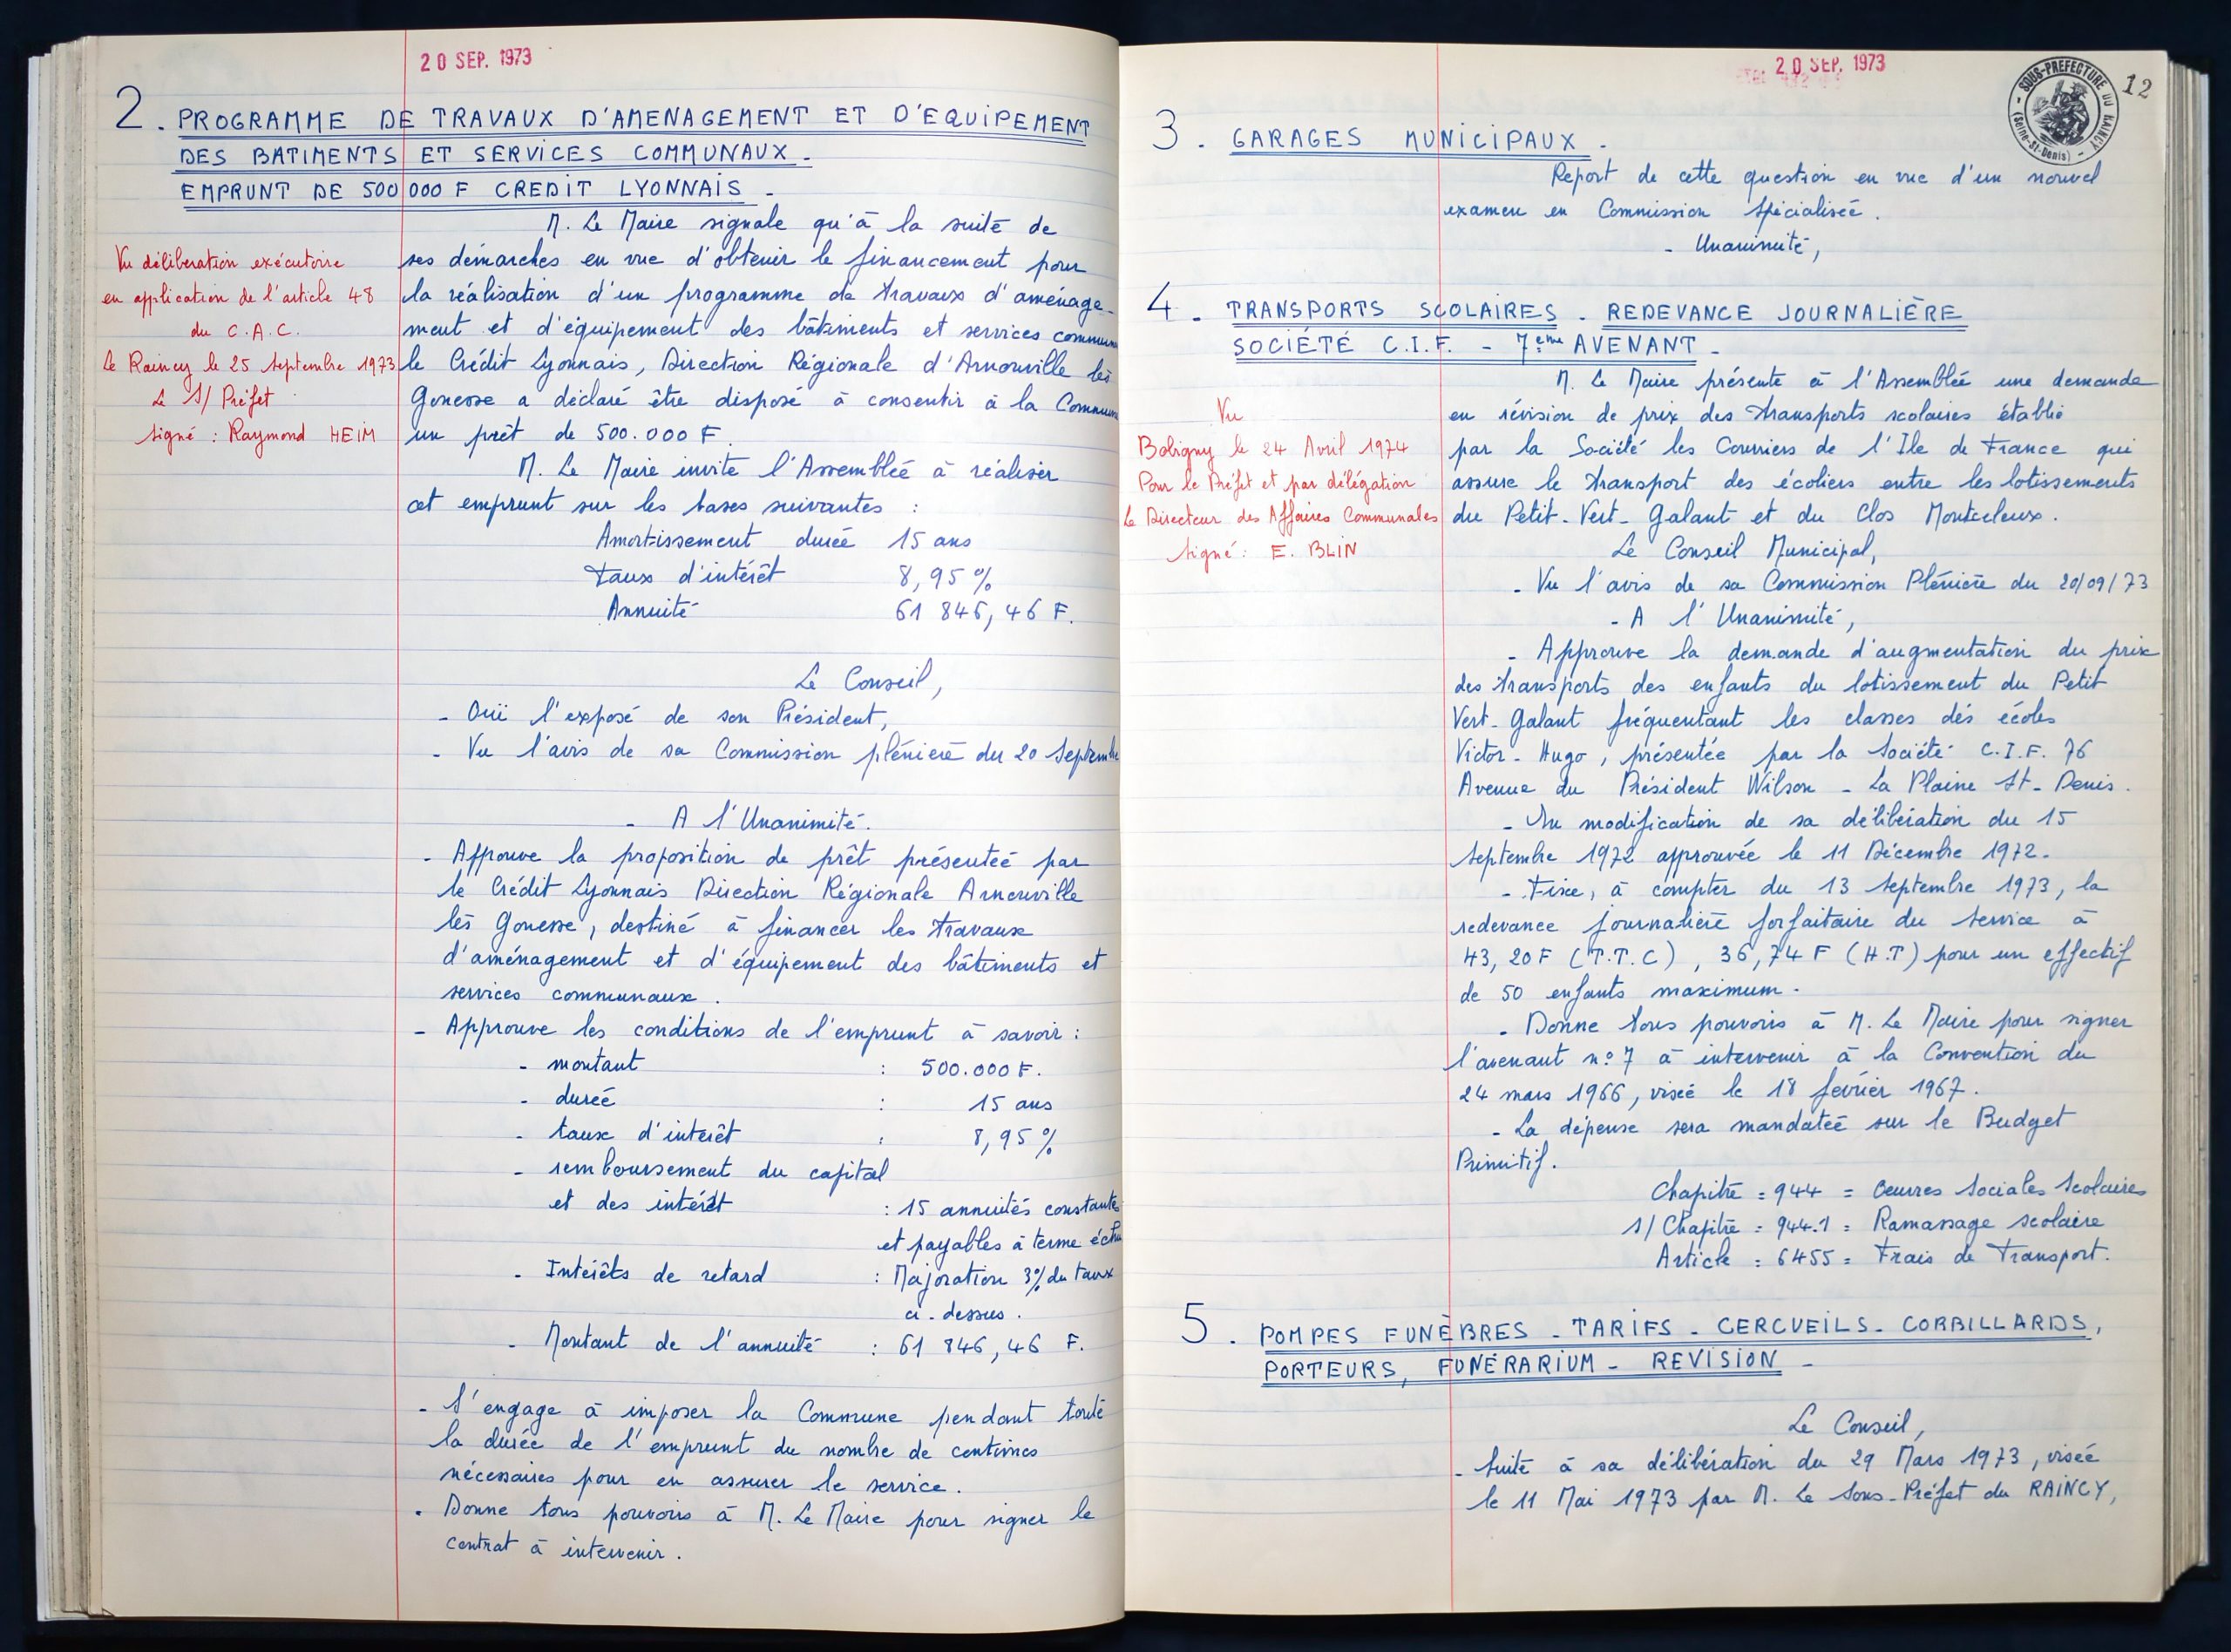 20 SEP. 1973
2. PROGRAMME DE TRAVAUX D'AMENAGEMENT ET D'EQUIPEMENT
DES BATIMENTS ET SERVICES COMMUNAUX -
EMPRUNT DE 500 000 F CREDIT LYONNAIS -
M. Le Maire signale qu'à la suite de
ses démarches en vue d'obtenir le financement pour
la réalisation d'un programme de travaux d'aménage-
ment et d'équipement des bâtiments et services commun
le Crédit Lyonnais, Direction Régionale d'Arnouville lès
Gonesse a déclaré être disposé à consentir à la Commun
un prêt de 500.000 F.
Vu délibération exécutoire
en application de l'article 48
du C.A.C.
Le Raincy le 25 septembre 1973
Le S/ Préfet
signé : Raymond HEIM
M. Le Maire invite l'Assemblée à réaliser
cet emprunt sur les bases suivantes :
Amortissement durée 15 ans
Taux d'intérêt 8,95 %
Annuité 61 846,46 F.
Le Conseil,
- Ouï l'exposé de son Président,
- Vu l'avis de sa Commission plénière du 20 Septembre
- A l'Unanimité.
- Approuve la proposition de prêt présentée par
le Crédit Lyonnais Direction Régionale Arnouville
lès Gonesse, destiné à financer les travaux
d'aménagement et d'équipement des bâtiments et
services communaux.
- Approuve les conditions de l'emprunt à savoir :
- montant : 500.000 F.
- durée : 15 ans
- taux d'intérêt : 8,95 %
- remboursement du capital
et des intérêt : 15 annuités constante
et payables à terme échu
- Intérêts de retard : Majoration 3% du taux
ci-dessus.
- Montant de l'annuité : 61 846,46 F.
- S'engage à imposer la Commune pendant toute
la durée de l'emprunt du nombre de centimes
nécessaires pour en assurer le service.
- Donne tous pouvoirs à M. Le Maire pour signer le
contrat à intervenir.
20 SEP. 1973
SOUS-PREFECTURE DU RAINCY
(Seine-St-Denis)
12
3. GARAGES MUNICIPAUX.
Report de cette question en vue d'un nouvel
examen en Commission spécialisée.
- Unanimité,
4. TRANSPORTS SCOLAIRES - REDEVANCE JOURNALIÈRE
SOCIÉTÉ C.I.F. - 7ème AVENANT -
M. Le Maire présente à l'Assemblée une demande
en révision de prix des transports scolaires établie
par la Société les Courriers de l'Ile de France qui
assure le transport des écoliers entre les lotissements
du Petit-Vert-Galant et du Clos Montceleux.
Vu
Bobigny le 24 Avril 1974
Pour le Préfet et par délégation
Le Directeur des Affaires Communales
signé : E. BLIN
Le Conseil Municipal,
- Vu l'avis de sa Commission Plénière du 20/09/73
- A l'Unanimité,
- Approuve la demande d'augmentation du prix
des transports des enfants du lotissement du Petit
Vert-Galant fréquentant les classes dés écoles
Victor-Hugo, présentée par la Société C.I.F. 76
Avenue du Président Wilson - La Plaine St-Denis.
- En modification de sa délibération du 15
septembre 1972 approuvée le 11 Décembre 1972.
- Fixe, à compter du 13 septembre 1973, la
redevance journalière forfaitaire du service à
43,20 F (T.T.C), 36,74 F (H.T) pour un effectif
de 50 enfants maximum.
- Donne tous pouvoirs à M. Le Maire pour signer
l'avenant n° 7 à intervenir à la Convention du
24 mars 1966, visée le 18 février 1967.
- La dépense sera mandatée sur le Budget
Primitif.
Chapitre = 944 = Oeuvres Sociales Scolaires
S/ Chapitre = 944.1 = Ramassage scolaire
Article = 6455 = Frais de Transport.
5. POMPES FUNÈBRES - TARIFS - CERCUEILS - CORBILLARDS,
PORTEURS, FUNÉRARIUM - REVISION -
Le Conseil,
- Suite à sa délibération du 29 Mars 1973, visée
le 11 Mai 1973 par M. Le Sous-Préfet du RAINCY,